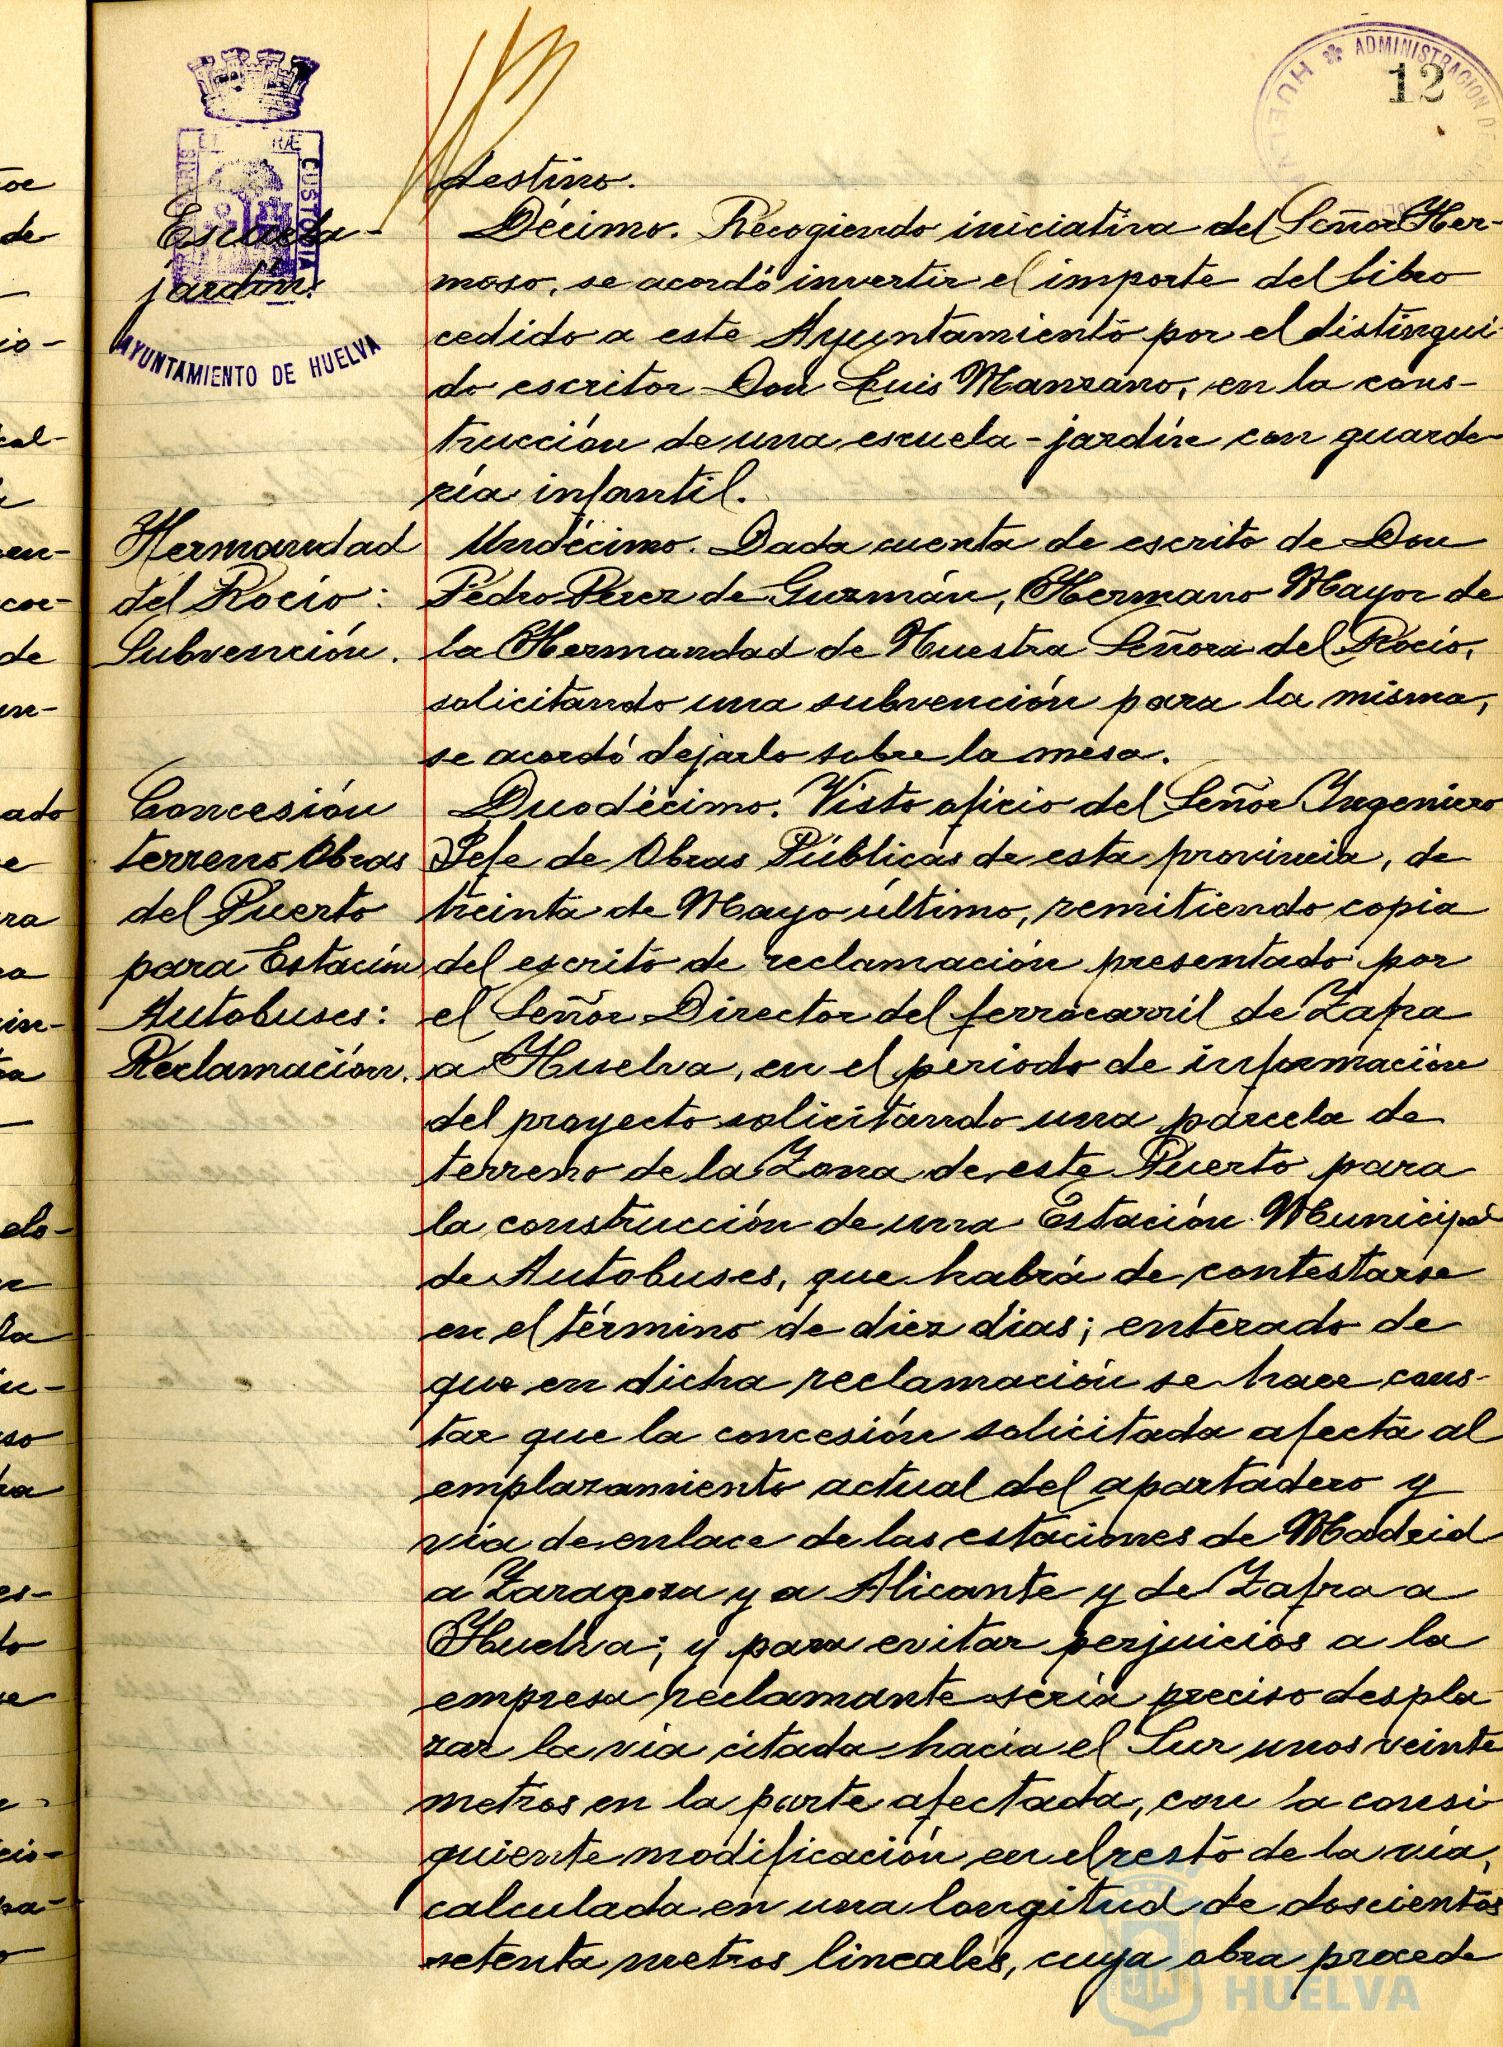 12
ADMINISTRACION DE
HUELVA
PORTUS MARIS ET TERRÆ CUSTODIA
AYUNTAMIENTO DE HUELVA
destino.
Escuela-
jardín.
Décimo. Recogiendo iniciativa del Señor Her-
moso, se acordó invertir el importe del libro
cedido a este Ayuntamiento por el distingui-
do escritor Don Luis Manzano, en la cons-
trucción de una escuela-jardín con guarde-
ría infantil.
Hermandad
del Rocío:
Subvención.
Undécimo. Dada cuenta de escrito de Don
Pedro Pérez de Guzmán, Hermano Mayor de
la Hermandad de Nuestra Señora del Rocío,
solicitando una subvención para la misma,
se acordó dejarlo sobre la mesa.
Concesión
terreno Obras
del Puerto
para Estación
Autobuses:
Reclamación.
Duodécimo. Visto oficio del Señor Ingeniero
Jefe de Obras Públicas de esta provincia, de
treinta de Mayo último, remitiendo copia
del escrito de reclamación presentado por
el Señor Director del ferrocarril de Zafra
a Huelva, en el periodo de información
del proyecto solicitando una parcela de
terreno de la Zona de este Puerto para
la construcción de una Estación Municipal
de Autobuses, que habrá de contestarse
en el término de diez dias; enterado de
que en dicha reclamación se hace cons-
tar que la concesión solicitada afecta al
emplazamiento actual del apartadero y
via de enlace de las estaciones de Madrid
a Zaragoza y a Alicante y de Zafra a
Huelva; y para evitar perjuicios a la
empresa reclamante sería preciso despla-
zar la via citada hacia el Sur unos veinte
metros en la parte afectada, con la consi-
guiente modificación en el resto de la via,
calculada en una longitud de doscientos
setenta metros lineales, cuya obra procede
HUELVA